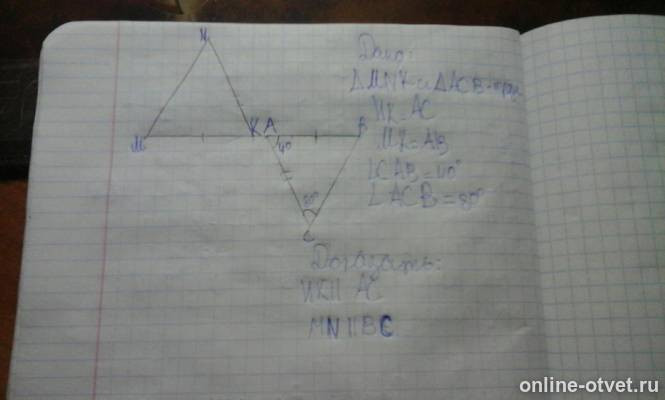 N
M
K A
40°
B
80°
C
Дано:
ΔMNK и ΔACB
NK=AC
MK=AB
∠CAB=40°
∠ACB=80°
Доказать:
NK || AC
MN || BC
online-otvet.ru